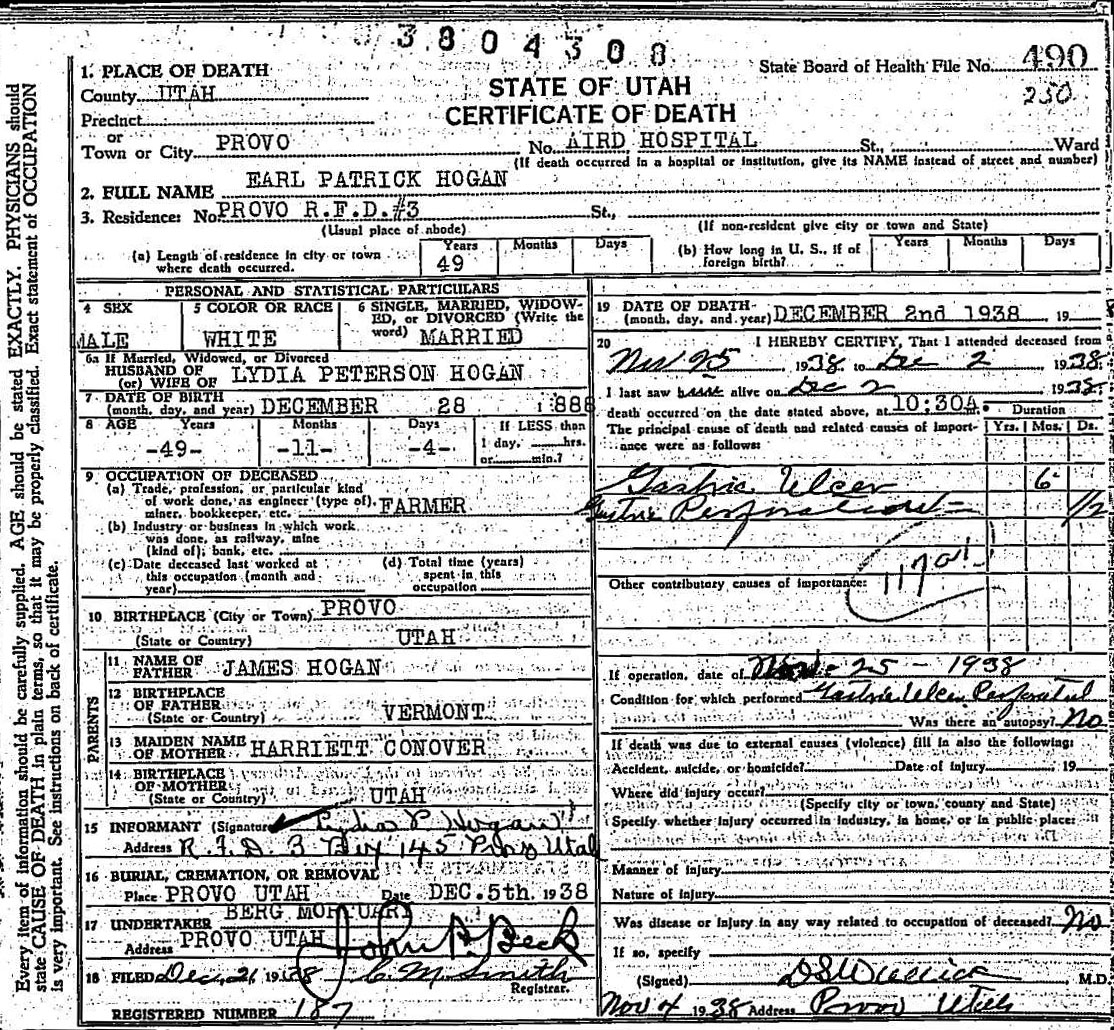 3804308
State Board of Health File No. 490
250
STATE OF UTAH
CERTIFICATE OF DEATH
1. PLACE OF DEATH
County UTAH
Precinct
or
Town or City PROVO No. AIRD HOSPITAL St., Ward
(If death occurred in a hospital or institution, give its NAME instead of street and number)
2. FULL NAME EARL PATRICK HOGAN
3. Residence: No. PROVO R.F.D.#3 St.,
(Usual place of abode) (If non-resident give city or town and State)
(a) Length of residence in city or town where death occurred. Years 49 Months Days
(b) How long in U. S., if of foreign birth? Years Months Days
PERSONAL AND STATISTICAL PARTICULARS
4 SEX 5 COLOR OR RACE 6 SINGLE, MARRIED, WIDOWED, OR DIVORCED (Write the word)
MALE WHITE MARRIED
6a If Married, Widowed, or Divorced
HUSBAND OF
(or) WIFE OF LYDIA PETERSON HOGAN
7 DATE OF BIRTH
(month, day, and year) DECEMBER 28 1888
8 AGE Years Months Days If LESS than
-49- -11- -4- 1 day, hrs.
or min.?
9 OCCUPATION OF DECEASED
(a) Trade, profession, or particular kind
of work done, as engineer (type of),
miner, bookkeeper, etc. FARMER
(b) Industry or business in which work
was done, as railway, mine
(kind of); bank, etc.
(c) Date deceased last worked at
this occupation (month and
year)
(d) Total time (years)
spent in this
occupation
10 BIRTHPLACE (City or Town) PROVO
(State or Country) UTAH
PARENTS
11 NAME OF
FATHER JAMES HOGAN
12 BIRTHPLACE
OF FATHER
(State or Country) VERMONT
13 MAIDEN NAME
OF MOTHER HARRIETT CONOVER
14 BIRTHPLACE
OF MOTHER
(State or Country) UTAH
15 INFORMANT (Signature) Lydia P Hogan
Address R.F.D. 3 Box 145 Provo Utah
16 BURIAL, CREMATION, OR REMOVAL
Place PROVO UTAH Date DEC. 5th. 1938
17 UNDERTAKER BERG MORTUARY
Address PROVO UTAH John P. Beck
18 FILED Dec, 21 1938 C. M. Smith
Registrar.
REGISTERED NUMBER 187
19 DATE OF DEATH
(month, day, and year) DECEMBER 2nd 1938 , 19
20 I HEREBY CERTIFY, That I attended deceased from
Nov 25 1938. to Dec 2 1938.
I last saw h alive on Dec 2 1938.
death occurred on the date stated above, at 10:30A.
The principal cause of death and related causes of importance were as follows:
Duration
Yrs. Mos. Ds.
Gastric Ulcer 6
Gastric Perforation 1/2
Other contributory causes of importance:
If operation, date of Nov 25 - 1938
Condition for which performed Gastric Ulcer Perforated
Was there an autopsy? No
If death was due to external causes (violence) fill in also the following:
Accident, suicide, or homicide? Date of injury 19
Where did injury occur?
(Specify city or town, county and State)
Specify whether injury occurred in industry, in home, or in public place:
Manner of injury
Nature of injury
Was disease or injury in any way related to occupation of deceased? No
If so, specify
(Signed) M.D.
Nov 4 1938 Address Provo Utah
Every item of information should be carefully supplied. AGE should be stated EXACTLY. PHYSICIANS should
state CAUSE OF DEATH in plain terms, so that it may be properly classified. Exact statement of OCCUPATION
is very important. See instructions on back of certificate.